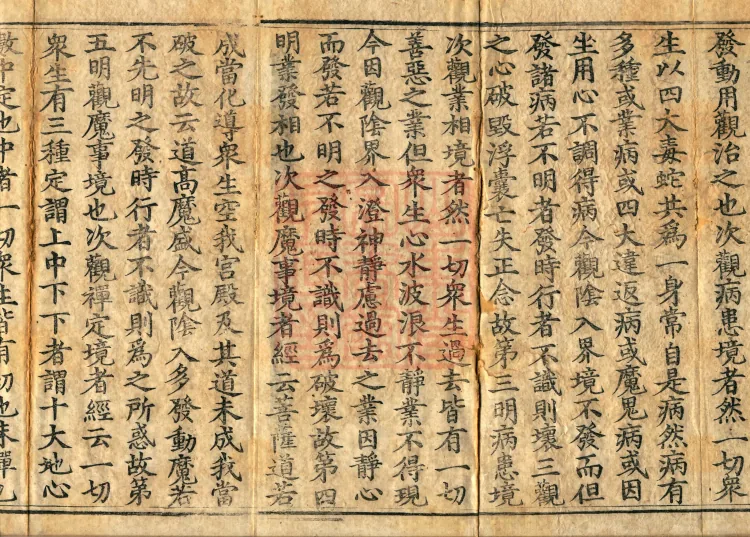 發動用觀治之也次觀病患境者然一切衆
生以四大毒蛇共爲一身常自是病然病有
多種或業病或四大違返病或魔鬼病或因
坐用心不調得病今觀陰入界境不發而但
發諸病若不明者發時行者不識則壞三觀
之心破毀浮囊亡失正念故第三明病患境
次觀業相境者然一切衆生過去皆有一切
善惡之業但衆生心水波浪不靜業不得現
今因觀陰界入澄神靜慮過去之業因靜心
而發若不明之發時不識則爲破壞故第四
明業發相也次觀魔事境者經云菩薩道若
成當化導衆生空我宮殿及其道未成我當
破之故云道髙魔盛今觀陰入多發動魔若
不先明之發時行者不識則爲之所惑故第
五明觀魔事境也次觀禪定境者經云一切
衆生有三種定謂上中下下者謂十大地心
數中定也中者一切衆生皆有初地味禪九